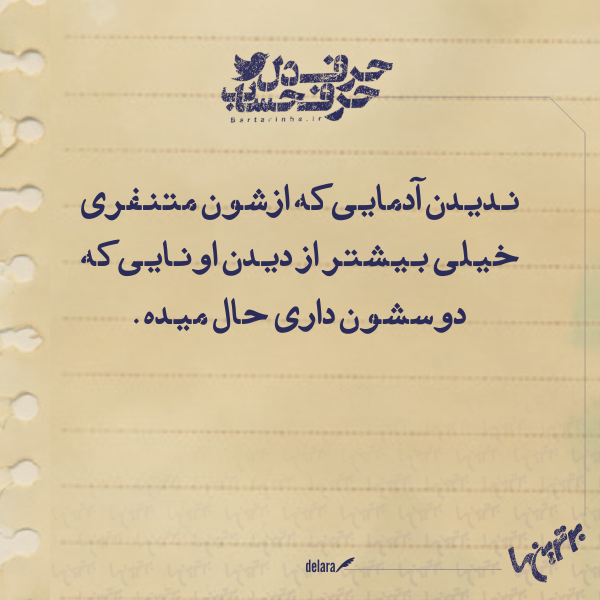 حرف دل
حرف حساب
Bartarinha.ir
ندیدن آدمایی که ازشون متنفری
خیلی بیشتر از دیدن اونایی که
دوسشون داری حال میده.
delara
برترین ها